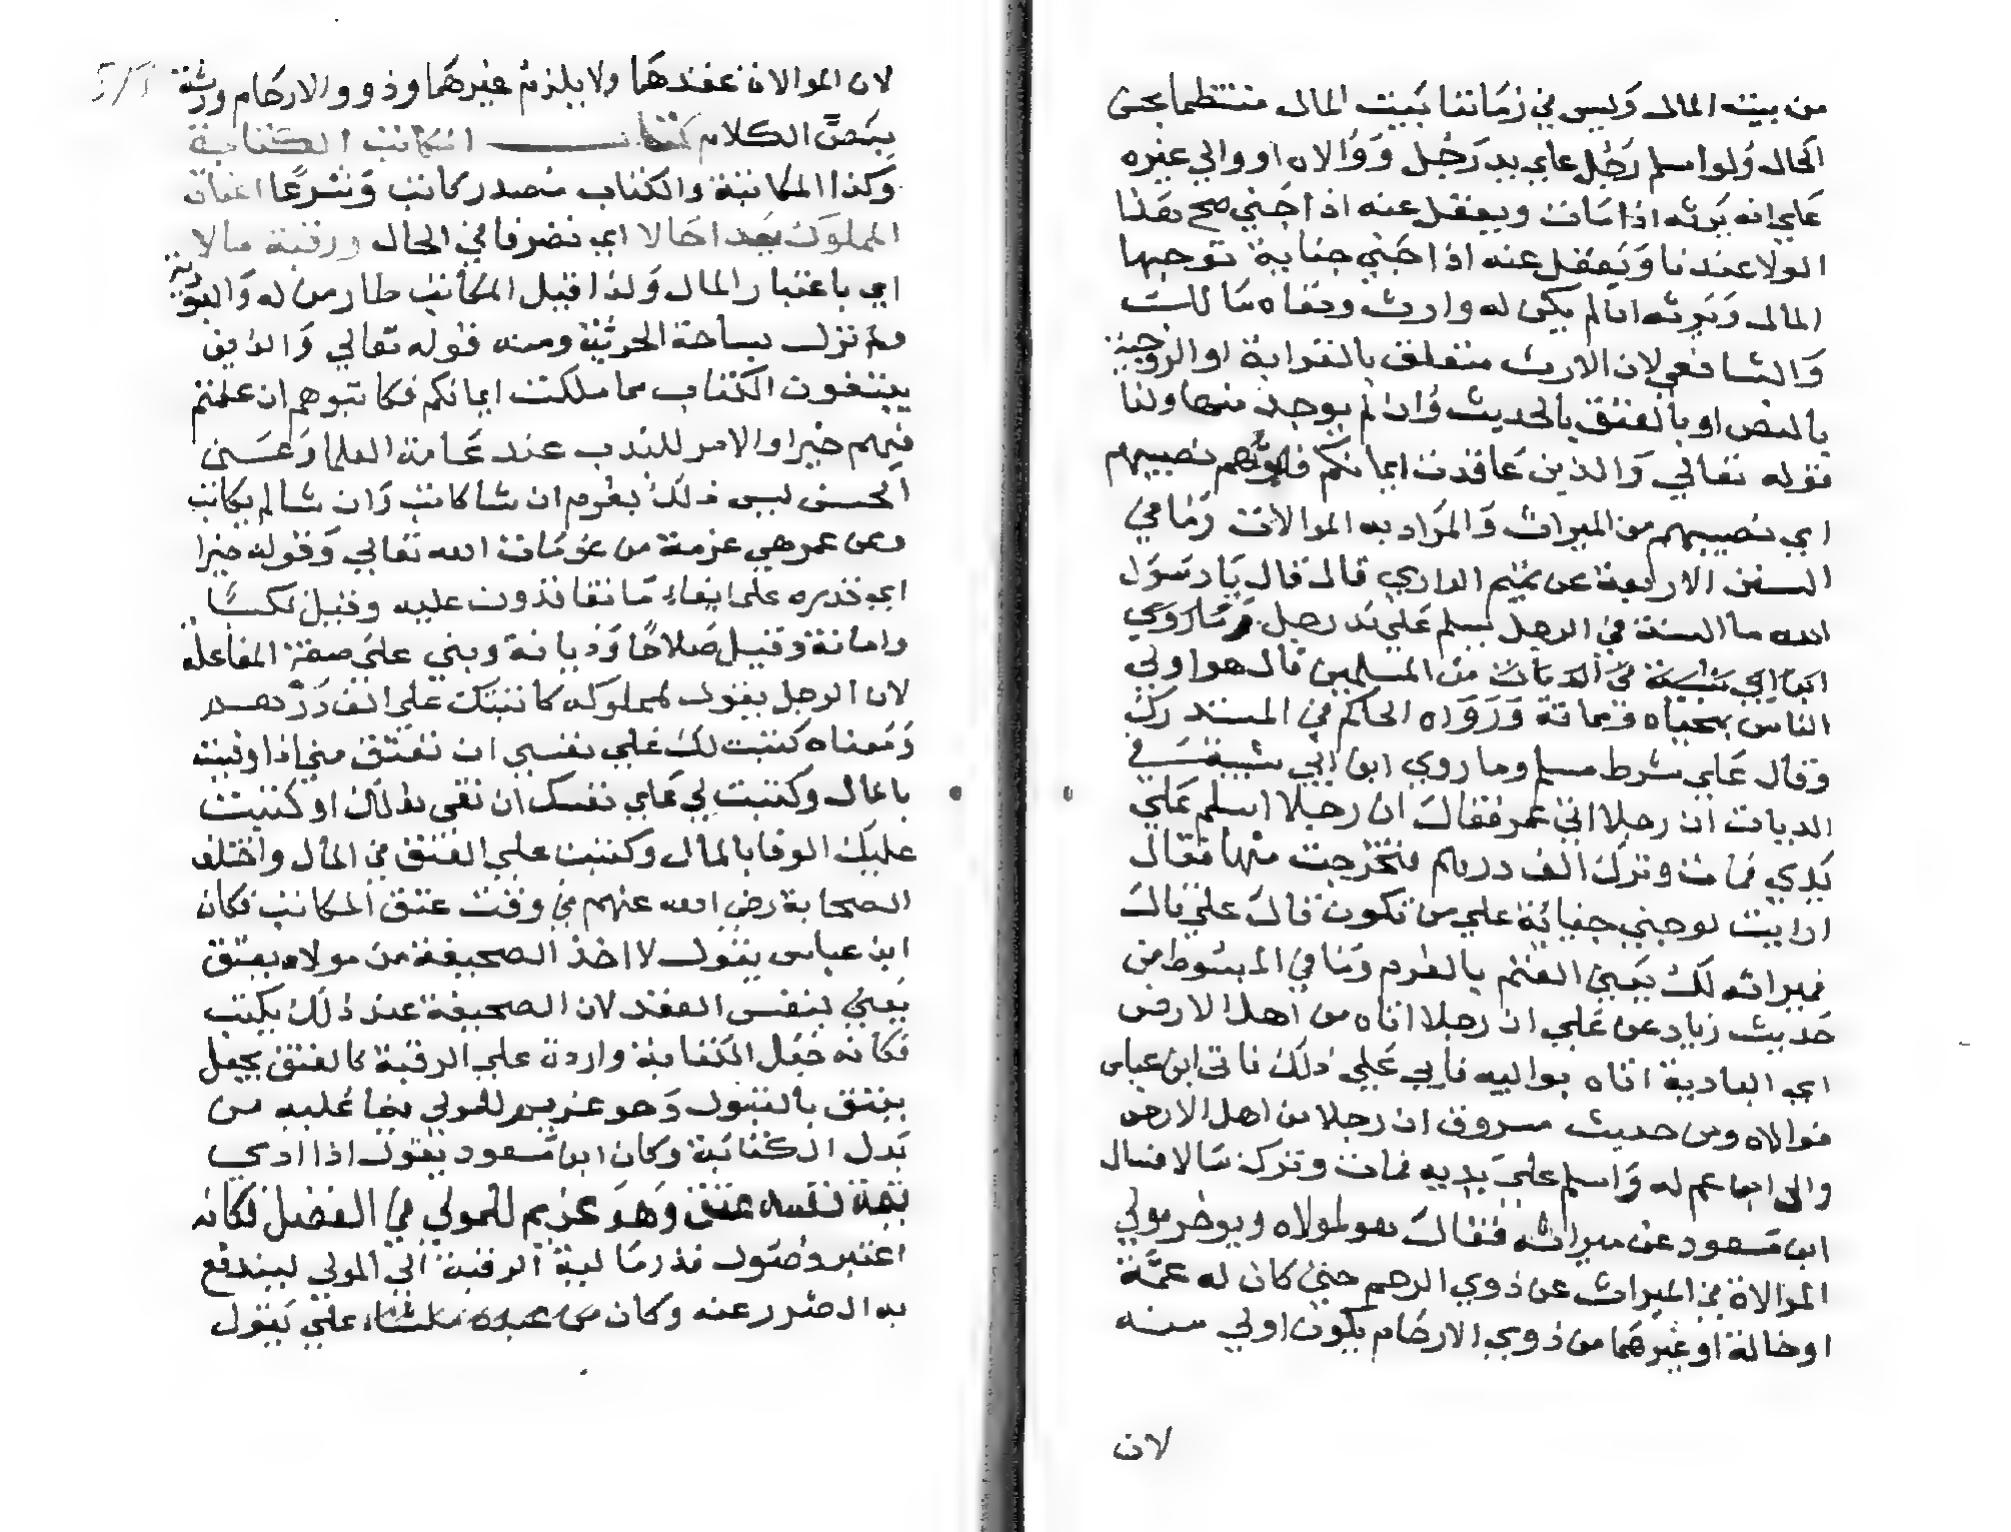 من بيت المال وليس في زماننا بيت المال منتظما بحسن
الحال ولو اسلم رجل علي يد رجل ووالاه او والي غيره
علي انه يرثه اذا مات ويعقل عنه اذا جني صح هذا
الولا عندنا ويعقل عنه اذا جني جناية توجبها
المال ويرثه ان لم يكن له وارث ونفاه مالك
والشافعي لان الارث متعلق بالقرابة او الزوجية
بالنص او بالعتق بالحديث وان لم يوجد منها ولنا
قوله تعالي والذين عاقدت ايمانكم فاتوهم نصيبهم
اي نصيبهم من الميراث والمراد به الموالات وما في
السنن الاربعة عن تميم الداري قال قال يا رسول
الله ما السنة في الرجل يسلم علي يد رجل وما روي
ابن ابي شيبة في الديات من المسلمين قال هو اولي
الناس بمحياه ومماته ورواه الحاكم في المستدرك
وقال علي شرط مسلم وما روي ابن ابي شيبة في
الديات ان رجلا اتي عمر فقال ان رجلا اسلم علي
يدي فمات وترك الف درهم فتخرجت منها فقال
ارايت لو جني جناية علي من تكون قال علي قال
فميراثه لك يعني الغنم بالغرم وما في المبسوط من
حديث زياد عن علي ان رجلا اتاه من اهل الارض
اي البادية اتاه يواليه فابي علي ذلك فاتي ابن عباس
فوالاه ومن حديث مسروق ان رجلا من اهل الارض
والي ابن عم له واسلم علي يديه فمات وترك مالا فسال
ابن مسعود عن ميراثه فقال هو لمولاه ويوخر مولي
الموالاة في الميراث عن ذوي الرحم حتي كان له عمة
او خالة او غيرهما من ذوي الارحام يكون اولي منه
لان
لان الموالاة عقدهما ولا يلزم غيرهما وذوو الارحام ورثة
بنص الكلام كتاب المكاتب الكتابة
وكذا المكاتبة والكتاب مصدر كاتب وشرعا اعتاق
المملوك يدا حالا اي تصرفا في الحال ورقبة مالا
اي باعتبار المال ولذا قيل المكاتب طار من له والعبودية
ولم نزل بساحة الحرية ومنه قوله تعالي والذين
يبتغون الكتاب مما ملكت ايمانكم فكاتبوهم ان علمتم
فيهم خيرا والامر للندب عند عامة العلما وعن
الحسن ليس ذلك بغرم ان شا كاتب وان شا لم يكاتب
وعن عمر هي عزمة من عزمات الله تعالي وقوله خيرا
اي قدره علي ايفاء ما تعاقدون عليه وقيل كسبا
وامانة وقيل صلاحا وديانة وبني علي صفة المفاعلة
لان الرجل يقول لمملوكه كاتبتك علي الف درهم
ومعناه كتبت لك علي نفسي ان تعتق مني اذا وفيت
بالمال وكتبت لي علي نفسك ان تفي بذلك او كتبت
عليك الوفا بالمال وكتبت علي العتق في المال واختلف
الصحابة رضي الله عنهم في وقت عتق المكاتب فكان
ابن عباس يقول لا اخذ الصحيفة من مولاه يعتق
يعني بنفس العقد لان الصحيفة عند ذلك يكتب
فكانه جعل الكتابة واردة علي الرقبة كالعتق بجعل
يعتق بالقبول وهو غريم للمولي بما عليه من
بدل الكتابة وكان ابن مسعود يقول اذا ادي
قيمة نفسه عتق وهو غريم للمولي في الفضل فكانه
اعتبر وصول قدر مالية الرقبة الي المولي ليندفع
به الضرر عنه وكان علي يقول